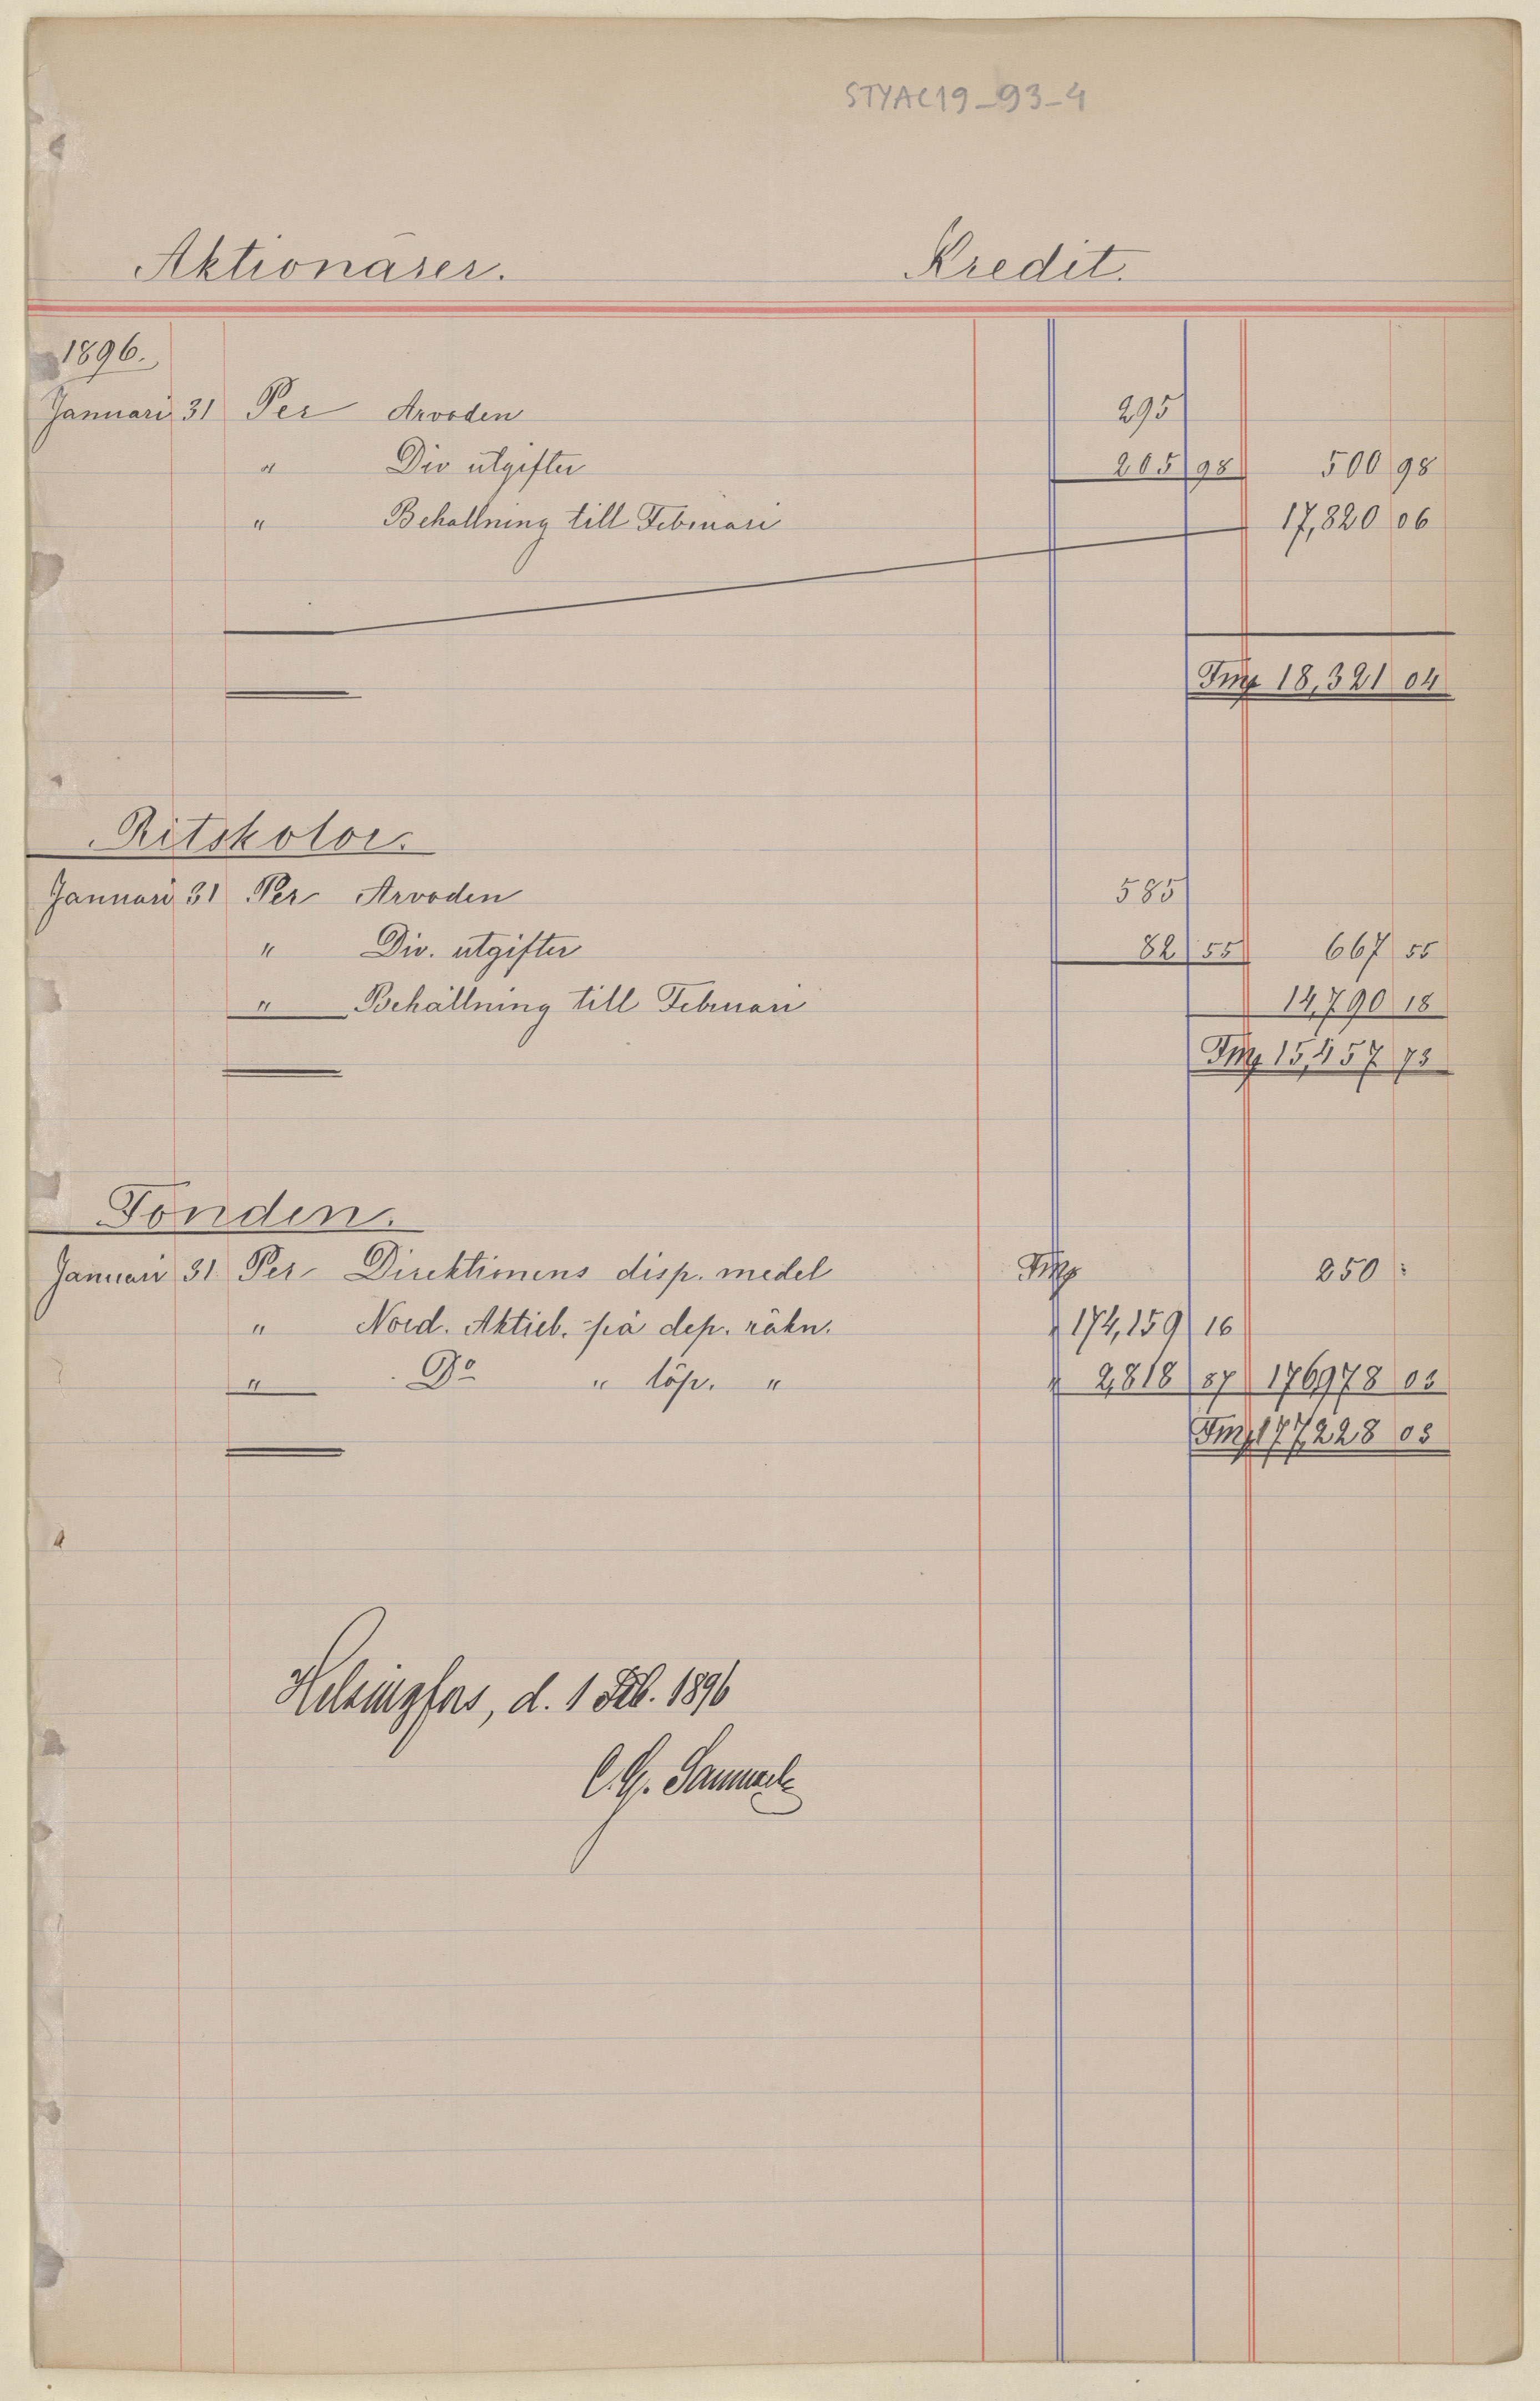 STYAC19_93-4
Aktionärer. Kredit.
1896.
Januari 31 Per Arvoden 295
" Div utgifter 205 98 500 98
" Behållning till Februari 17,820 06
Fmp 18,321 04
Ritskolor.
Januari 31 Per Arvoden 585
" Div. utgifter 82 55 667 55
" Behållning till Februari 14,790 18
Fmp 15,457 73
Fonden.
Januari 31 Per Direktionens disp. medel Fmp 250 :
" Nord. Aktieb. på dep. räkn. " 174,159 16
" Do " löp. " " 2,818 87 176978 03
Fmp 177228 03
Helsingfors, d. 1 Feb. 1896
C. G.